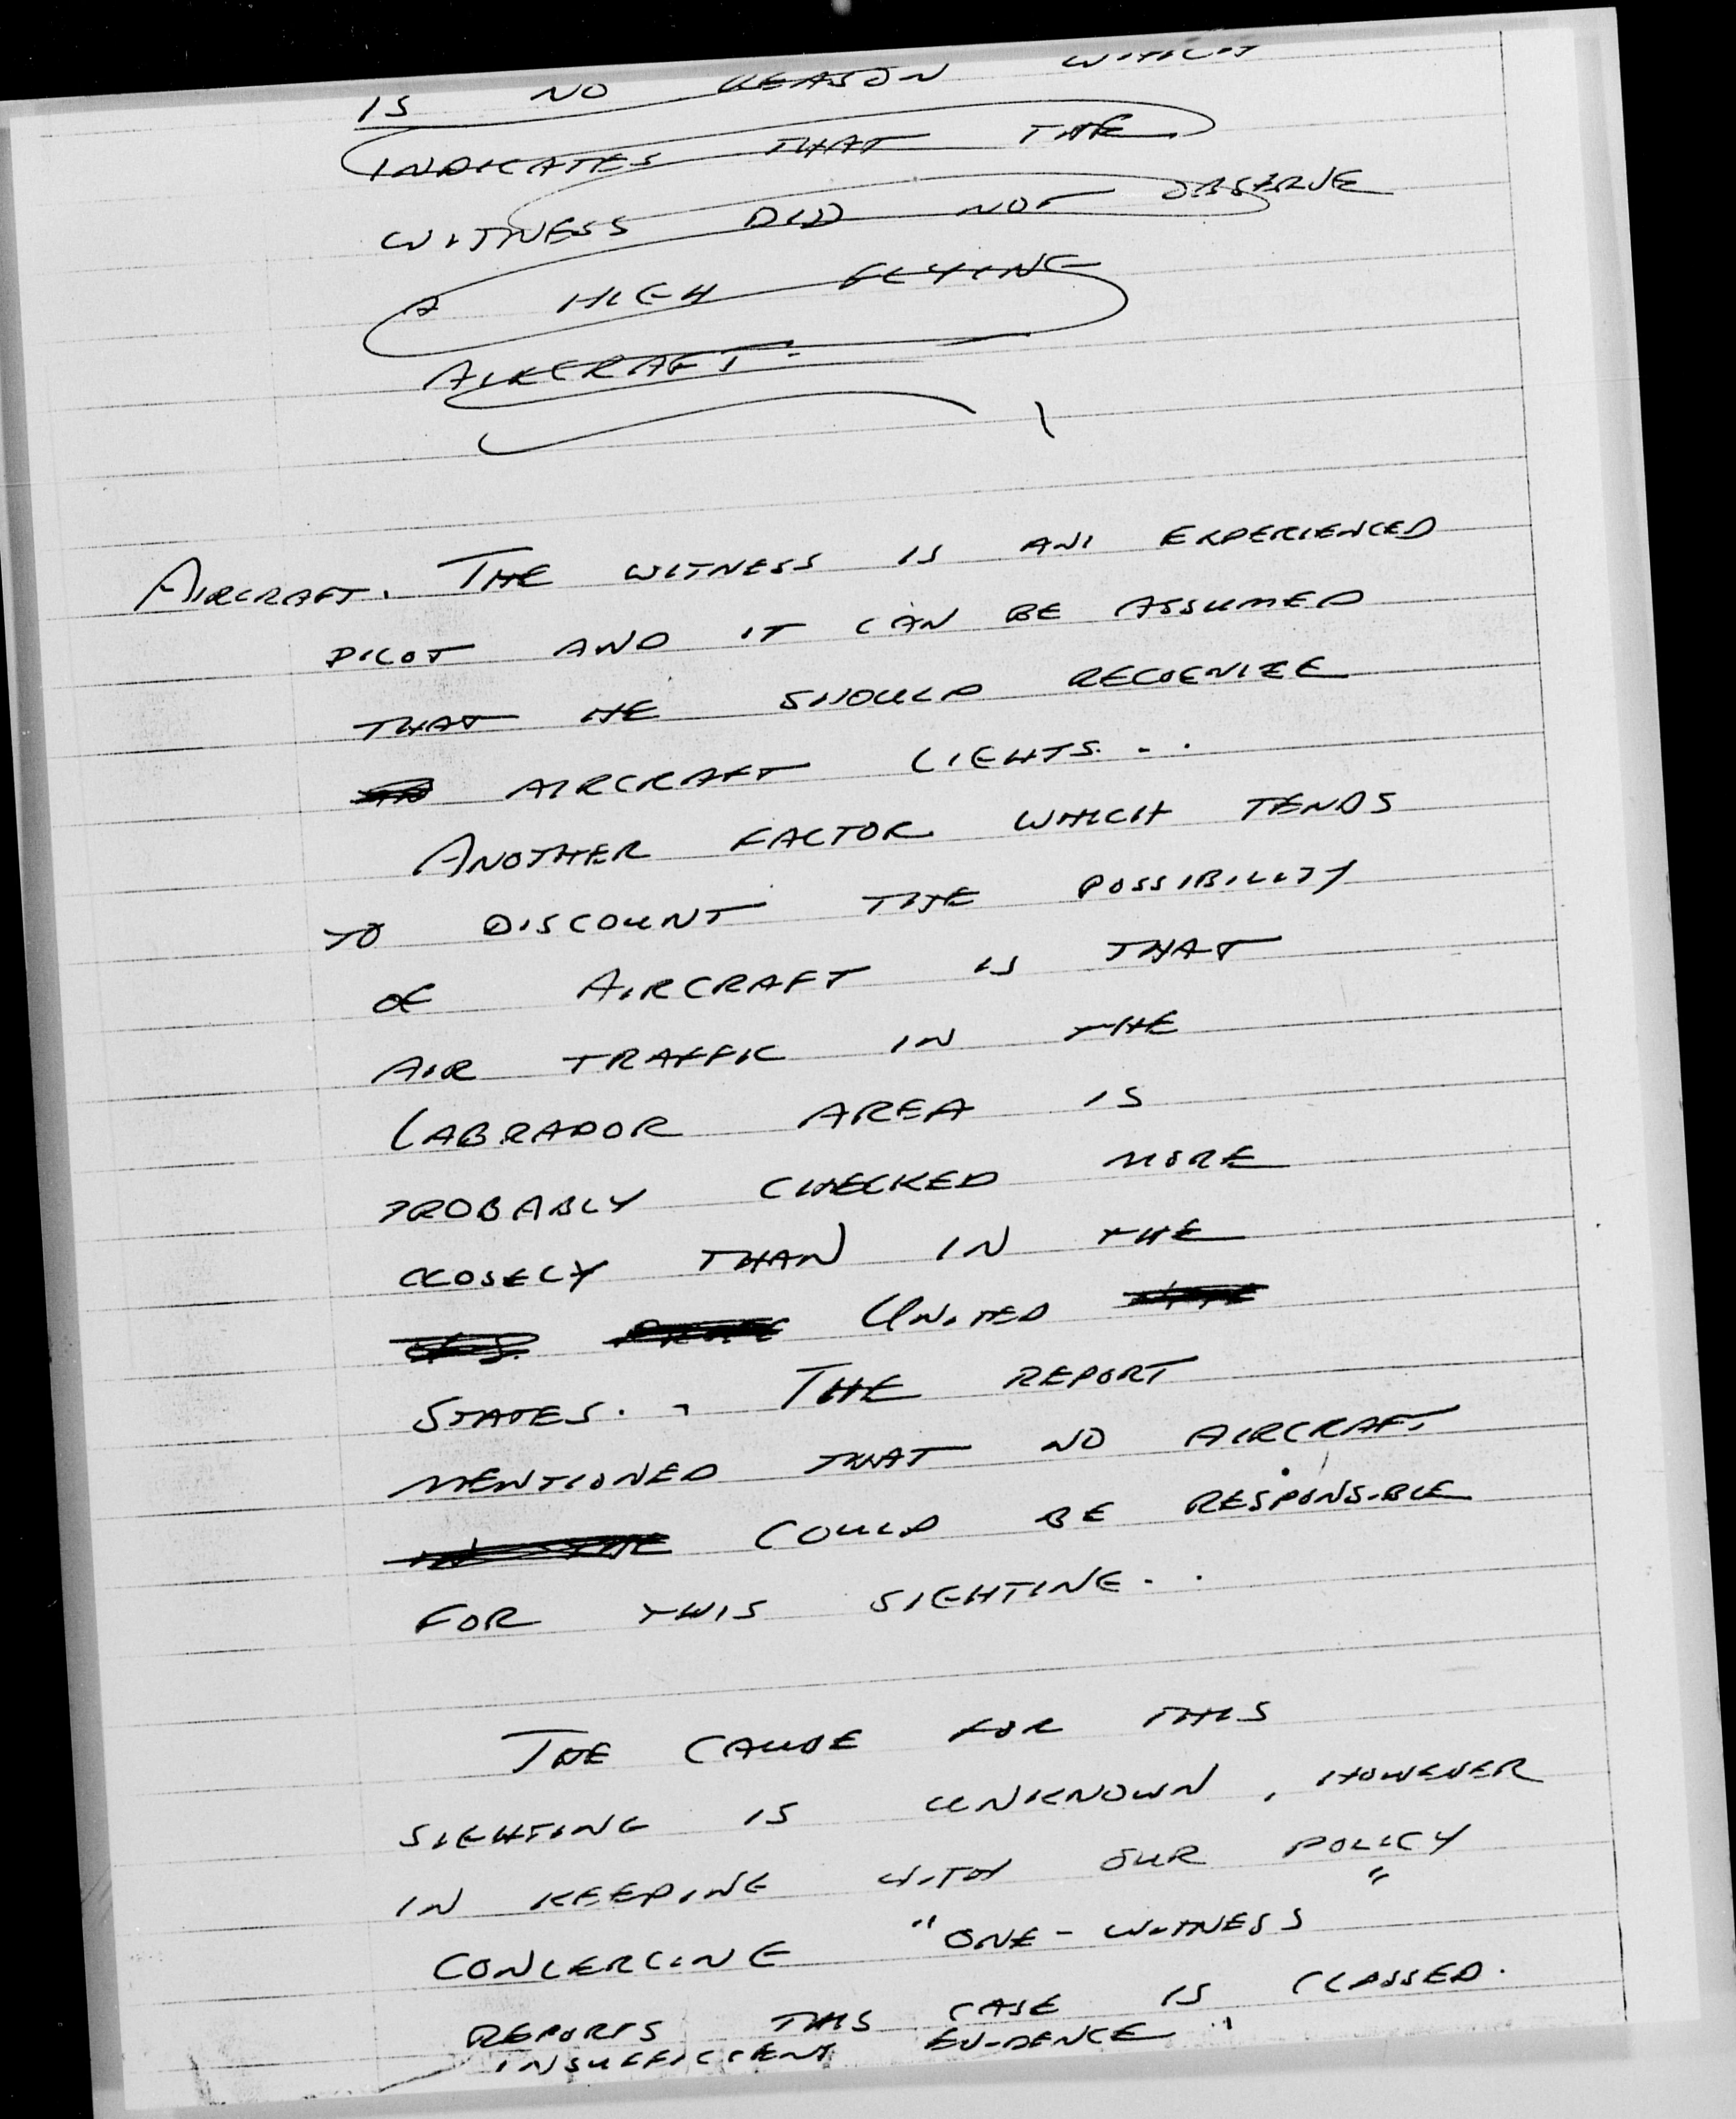 IS NO REASON WHICH
INDICATES THAT THE
WITNESS DID NOT OBSERVE
A HIGH FLYING
AIRCRAFT.
AIRCRAFT. THE WITNESS IS AN EXPERIENCED
PILOT AND IT CAN BE ASSUMED
THAT HE SHOULD RECOGNIZE
AIRCRAFT LIGHTS. . .
ANOTHER FACTOR WHICH TENDS
TO DISCOUNT THE POSSIBILITY
OF AIRCRAFT IS THAT
AIR TRAFFIC IN THE
LABRADOR AREA IS
PROBABLY CHECKED MORE
CLOSELY THAN IN THE
UNITED
STATES. . THE REPORT
MENTIONED THAT NO AIRCRAFT
COULD BE RESPONSIBLE
FOR THIS SIGHTING. .
THE CAUSE FOR THIS
SIGHTING IS UNKNOWN, HOWEVER
IN KEEPING WITH OUR POLICY
CONCERCING "ONE-WITNESS"
REPORTS THIS CASE IS CLASSED.
INSUFFICIENT EVIDENCE"